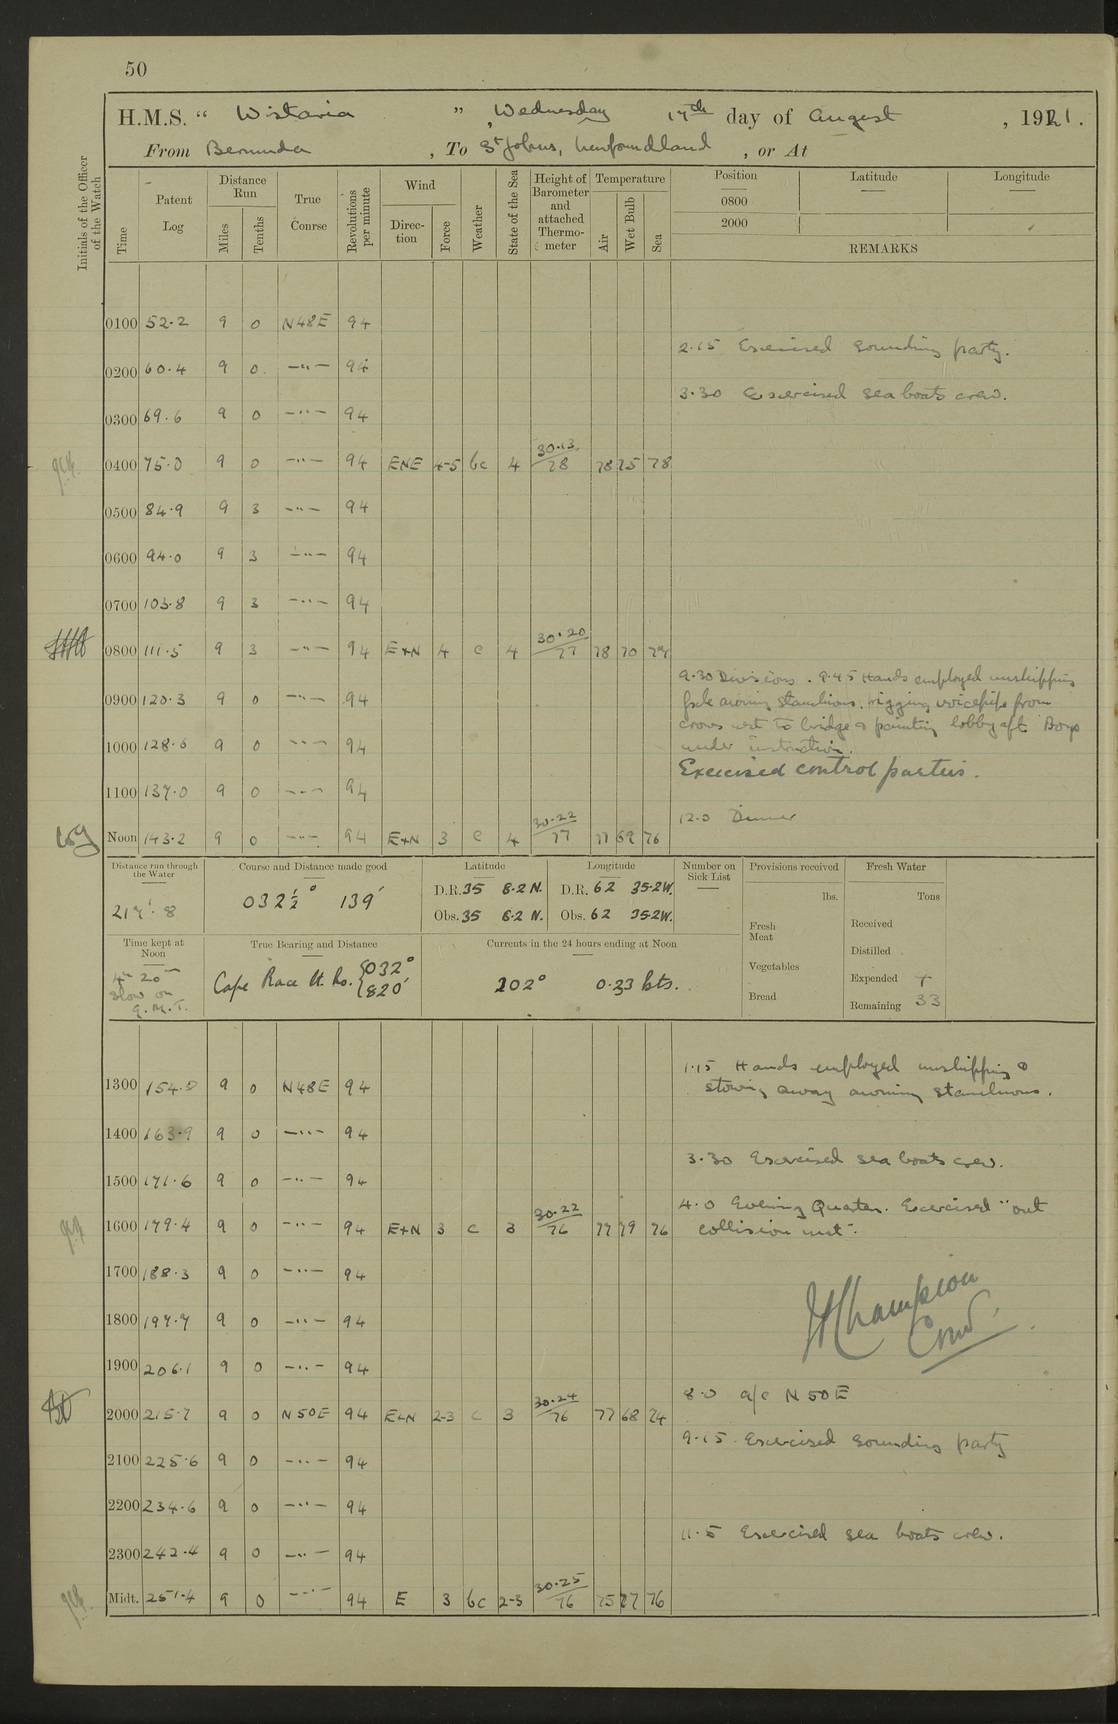 50
H.M.S. “ Wistaria ” , Wednesday 17th day of August , 1921.
From Bermuda , To St Johns, Newfoundland , or At
Initials of the Officer of the Watch
Time Patent Log Distance Run Miles Tenths True Course Revolutions per minute Wind Direction Force Weather State of the Sea Height of Barometer and attached Thermometer Temperature Air Wet Bulb Sea Position Latitude Longitude
0800
2000
REMARKS
0100 52.2 9 0 N48E 94
2.15 Exercised sounding party.
0200 60.4 9 0 —"— 94
3.30 Exercised sea boats crew.
0300 69.6 9 0 —"— 94
0400 75.0 9 0 —"— 94 ENE 4-5 bc 4 30.13/78 78 75 78
0500 84.9 9 3 —"— 94
0600 94.0 9 3 —"— 94
0700 103.8 9 3 —"— 94
0800 111.5 9 3 —"— 94 E×N 4 c 4 30.20/77 78 70
9.30 Divisions. 9.45 Hands employed unshipping
0900 120.3 9 0 —"— 94
fxle awning stanchions, rigging voicepipe from
crows nest to bridge & painting lobby aft. Boys
1000 128.6 9 0 —"— 94
under instruction.
Exercised control parties.
1100 137.0 9 0 —"— 94
12.0 Dinner
Noon 143.2 9 0 —"— 94 E×N 3 c 4 30.22/77 77 69 76
Distance run through the Water
217'.8
Course and Distance made good
032½° 139'
Latitude Longitude
D.R. 35 8.2 N. D.R. 62 35.2 W.
Obs. 35 8.2 N. Obs. 62 35.2 W.
Number on Sick List
Provisions received
lbs.
Fresh Meat
Vegetables
Bread
Fresh Water
Tons
Received
Distilled
Expended
Remaining 33
Time kept at Noon
4h 20m
slow on
G.M.T.
True Bearing and Distance
Cape Race Lt. Ho. {032° 820'
Currents in the 24 hours ending at Noon
202° 0.33 kts.
1.15 Hands employed unshipping &
1300 154.0 9 0 N48E 94
stowing away awning stanchions.
1400 163.9 9 0 —"— 94
3.30 Exercised sea boats crew.
1500 171.6 9 0 —"— 94
4.0 Evening Quarters. Exercised "out
1600 179.4 9 0 —"— 94 E×N 3 c 3 30.22/76 77 79 76
collision mat".
1700 188.3 9 0 —"— 94
1800 197.7 9 0 —"— 94
Champion
Comd.
1900 206.1 9 0 —"— 94
8.0 a/c N50E
2000 215.7 9 0 N50E 94 E×N 2-3 c 3 30.24/76 77 68 74
9.15 Exercised sounding party
2100 225.6 9 0 —"— 94
2200 234.6 9 0 —"— 94
11.5 Exercised sea boats crew.
2300 242.4 9 0 —"— 94
Midt. 251.4 9 0 —"— 94 E 3 bc 2-3 30.25/76 75 77 76